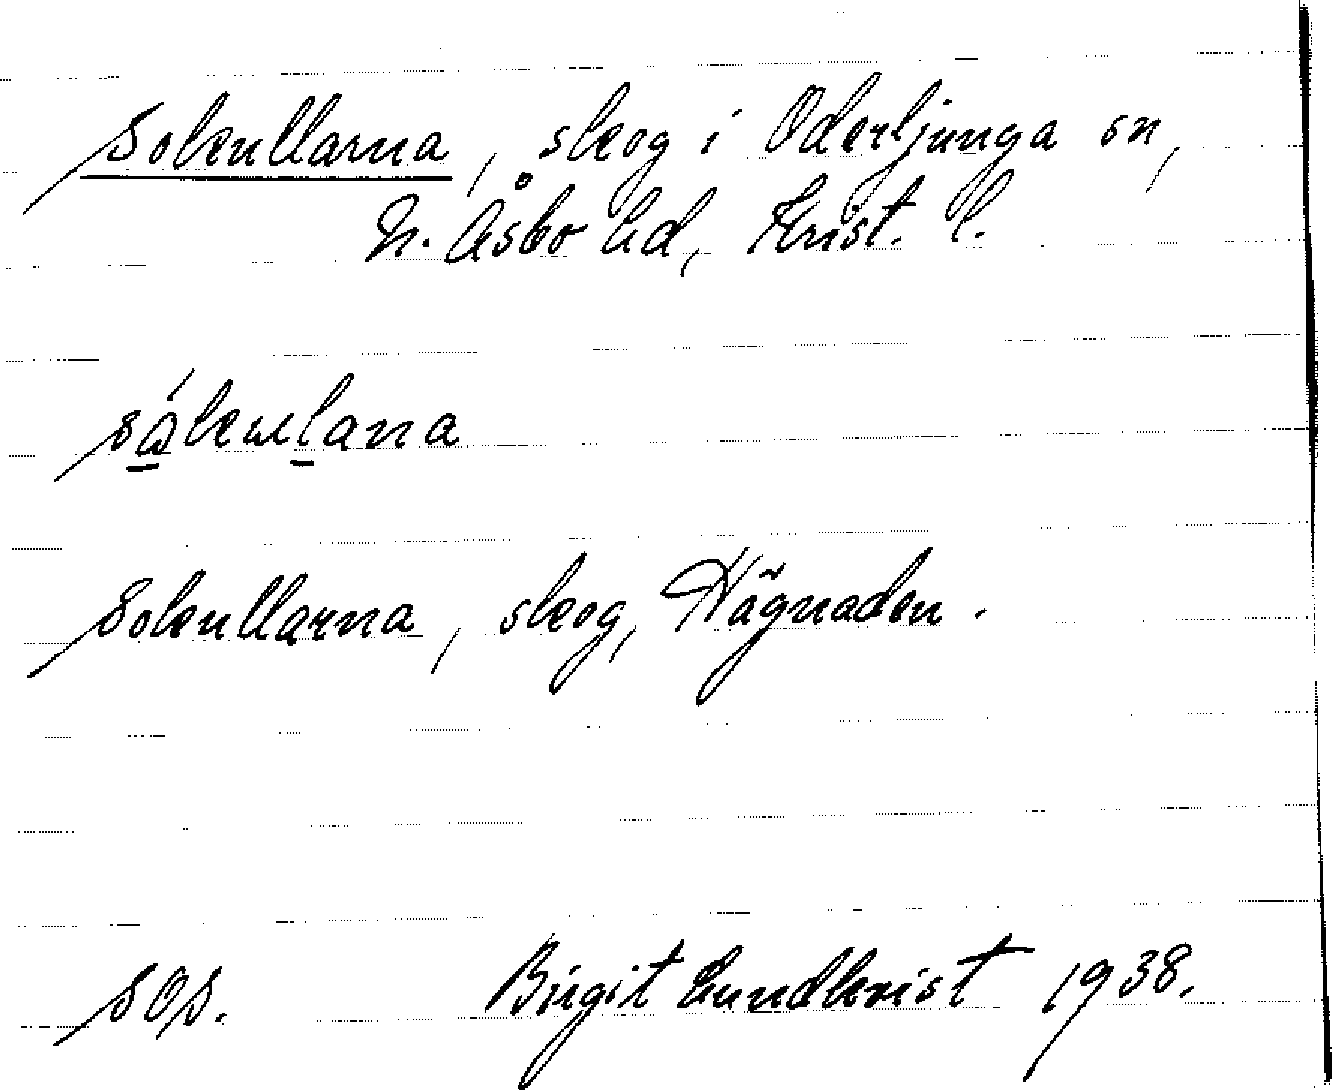 Solkullarna, skog i Oderljunga sn,
N. Åsbo hd, Krist. l.
Solkullarna, skog, Hägnaden.
SOS. Birgit Lundkvist 1938.